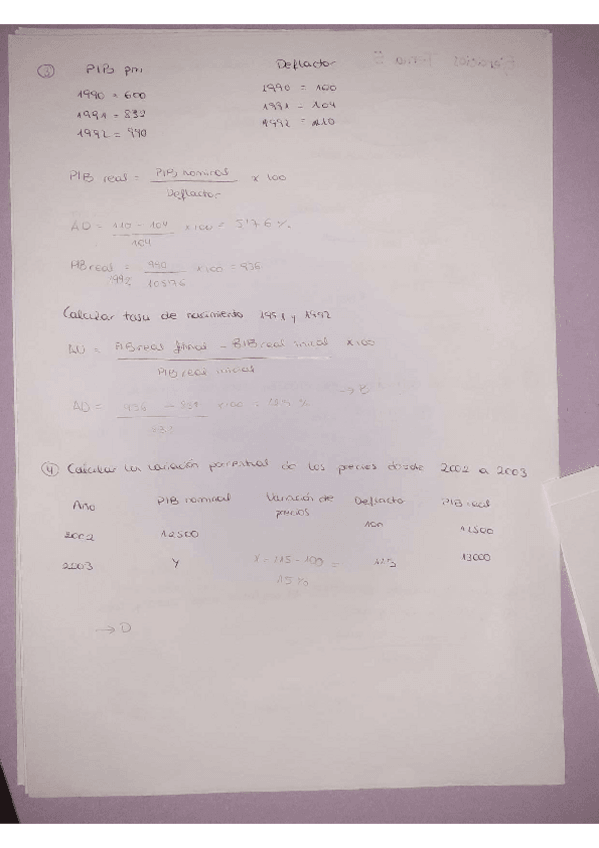 ③ PIB pm Deflactor
1990 = 600 1990 = 100
1991 = 832 1991 = 104
1992 = 990 1992 = 110
PIB real = PIB nominal / Deflactor x 100
AD = 110 - 104 / 104 x 100 = 5'76 %
PIB real 1992 = 990 / 105'76 x 100 = 936
Calcular tasa de 1991 y 1992
AD = PIB real final - PIB real inicial / PIB real inicial x 100
→ B
AD = 936 - x 100 = %
④ Calcular la variación porcentual de los precios desde 2002 a 2003
Año PIB nominal Variación de precios Deflacto PIB real
2002 12500 100 12500
2003 Y x = 115 - 100 = 15 % 115 13000
→ D